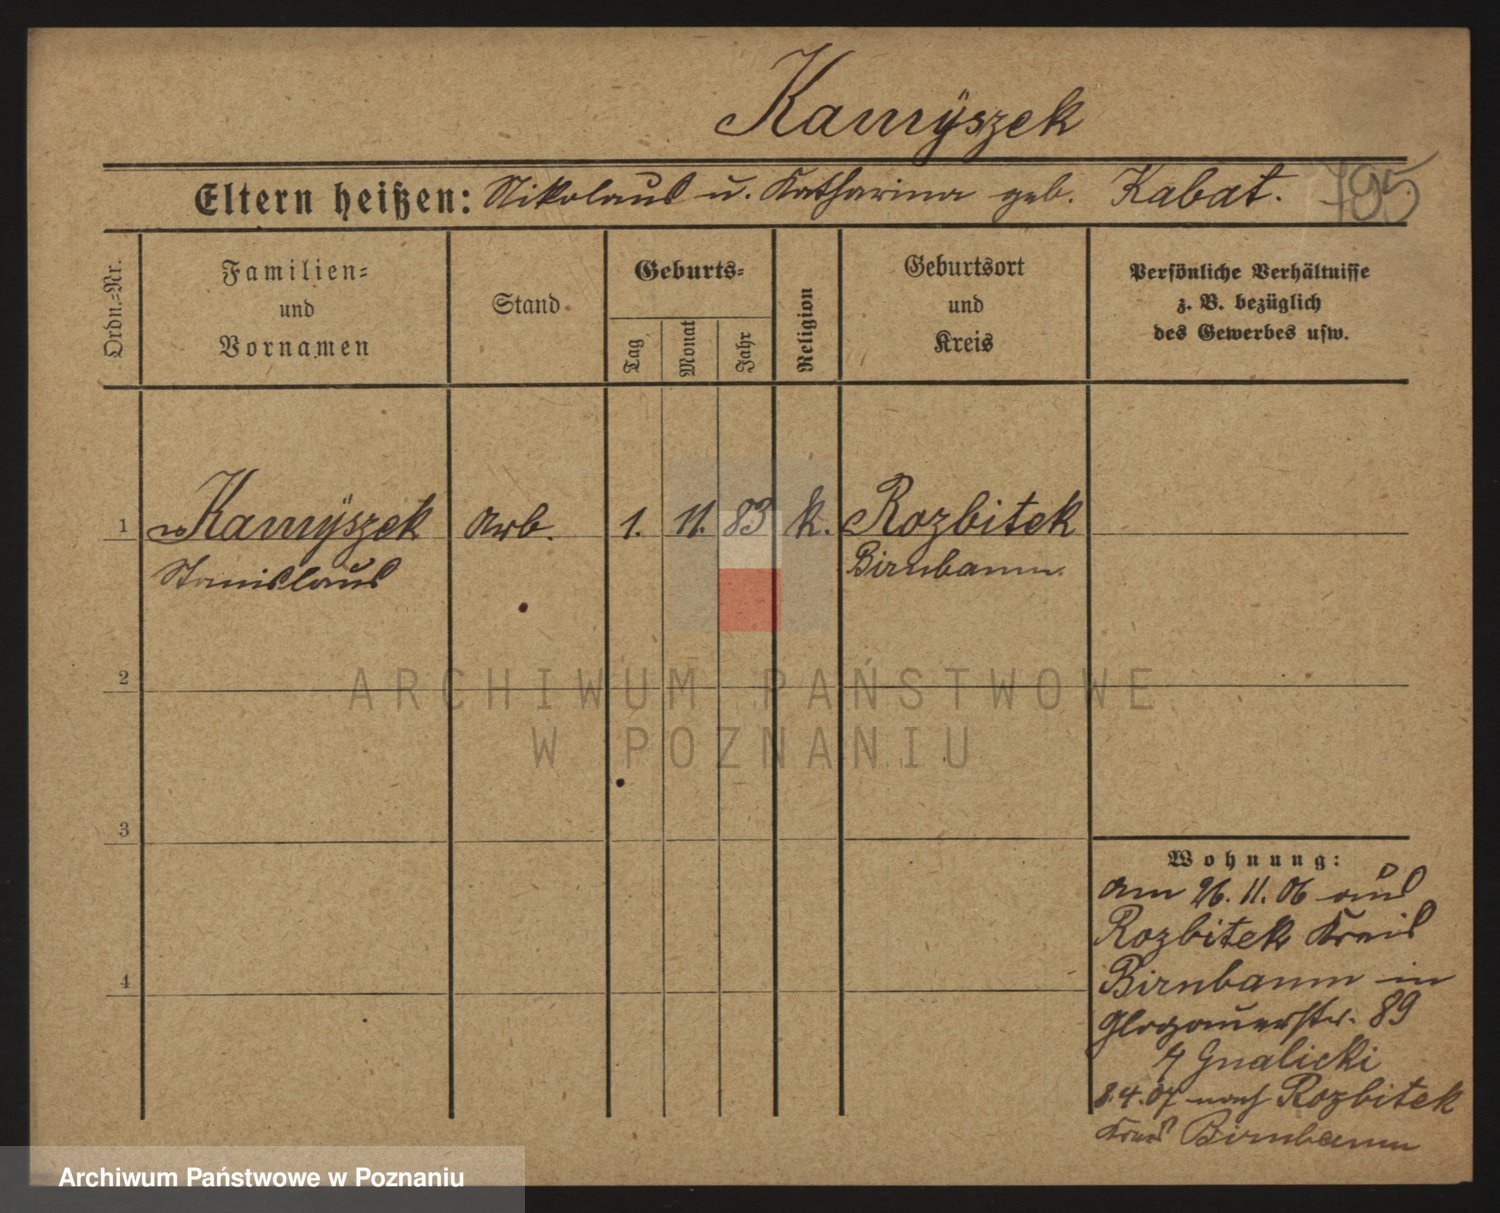 Kamÿszek
Eltern heißen: Nikolaus u. Katharina geb. Kabat. 795
Ordn.-Nr.
Familien-
und
Vornamen
Stand
Geburts-
Tag
Monat
Jahr
Religion
Geburtsort
und
Kreis
Persönliche Verhältnisse
z. B. bezüglich
des Gewerbes usw.
1 Kamÿszek Arb. 1. 11. 83 k. Rozbitek
Stanislaus Birnbaum
ARCHIWUM PAŃSTWOWE
W POZNANIU
2
3
4
Wohnung:
am 26. 11. 06 aus
Rozbitek Kreis
Birnbaum in
Glogauerstr. 89
Gnalicki
8.4.07 nach Rozbitek
Kreis Birnbaum
Archiwum Państwowe w Poznaniu